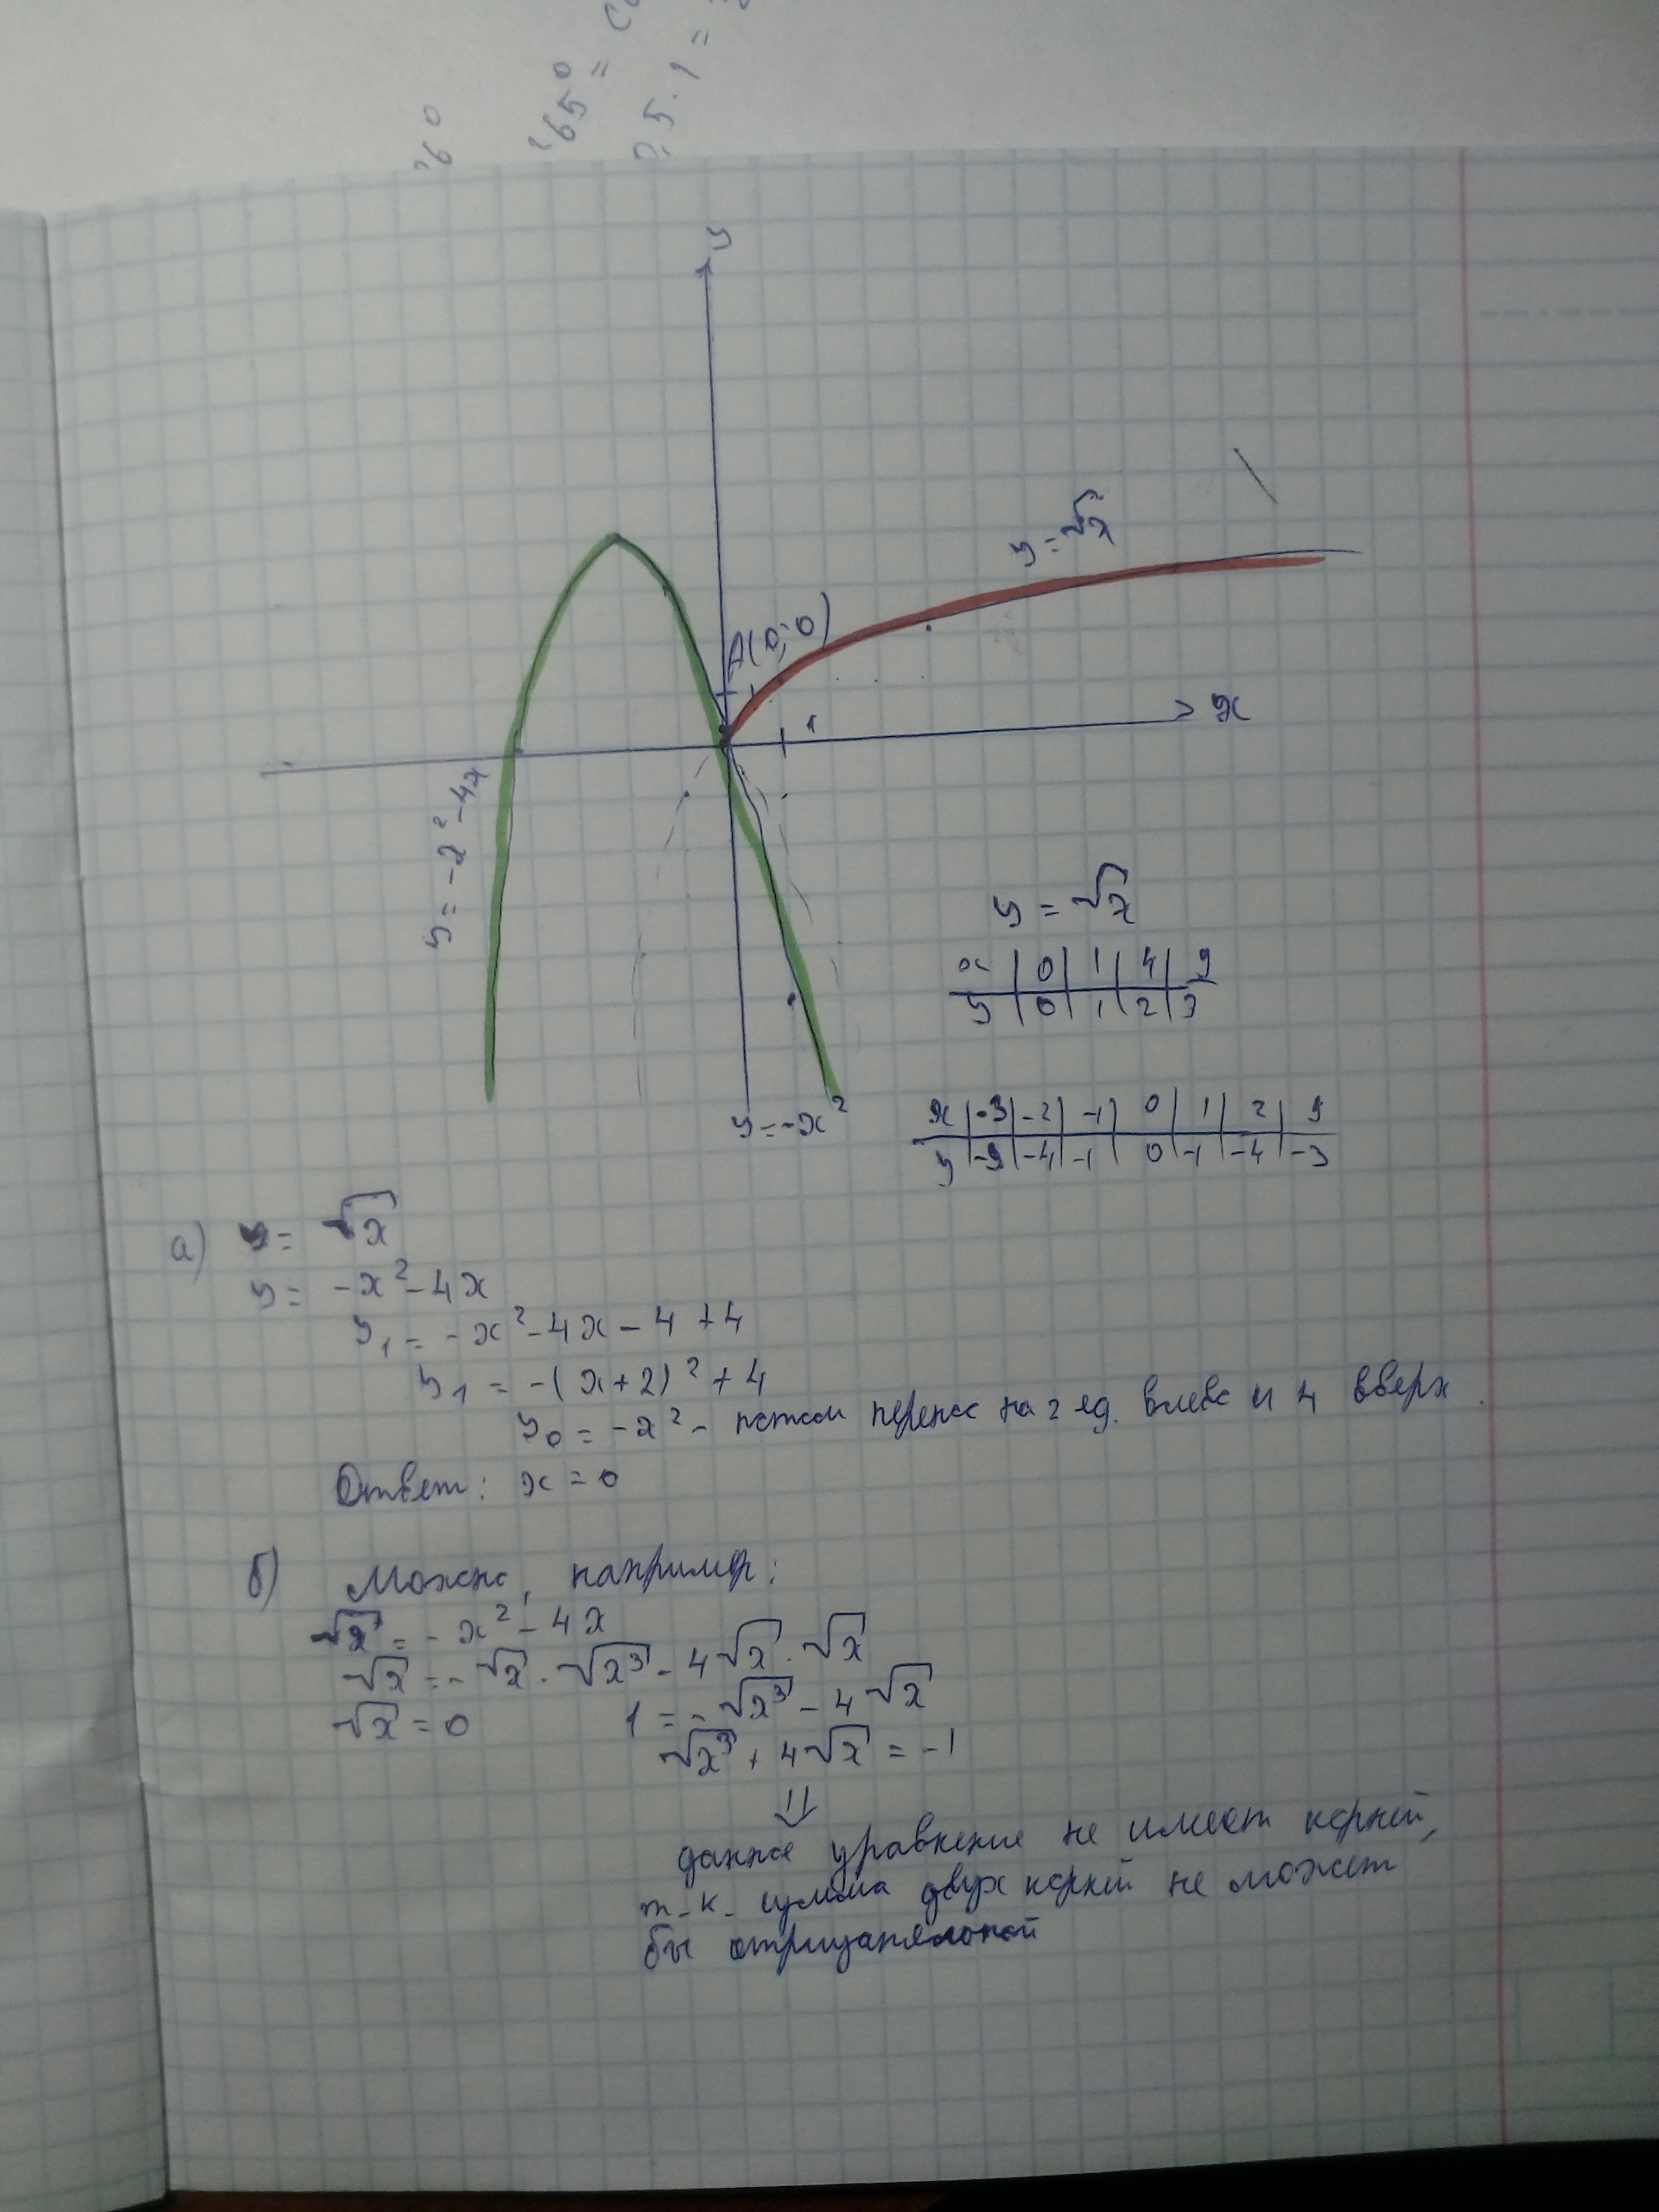 26°
265° =
0,5 · 1 =
y
y = √x
A(0; 0)
1
x
y = -x² - 4x
y = √x
x | 0 | 1 | 4 | 9
y | 0 | 1 | 2 | 3
y = -x²
x | -3 | -2 | -1 | 0 | 1 | 2 | 9
y | -9 | -4 | -1 | 0 | -1 | -4 | -3
а) y = √x
y = -x² - 4x
y₁ = -x² - 4x - 4 + 4
y₁ = -(x+2)² + 4
y₀ = -x² - потом перенос на 2 ед. влево и 4 вверх.
Ответ: x = 0
б) Можно, например:
√x = -x² - 4x
√x = -√x · √x³ - 4√x · √x
√x = 0 1 = -√x³ - 4√x
√x³ + 4√x = -1
⇓
данное уравнение не имеет корней,
т-к- сумма двух корней не может
бы отрицательной